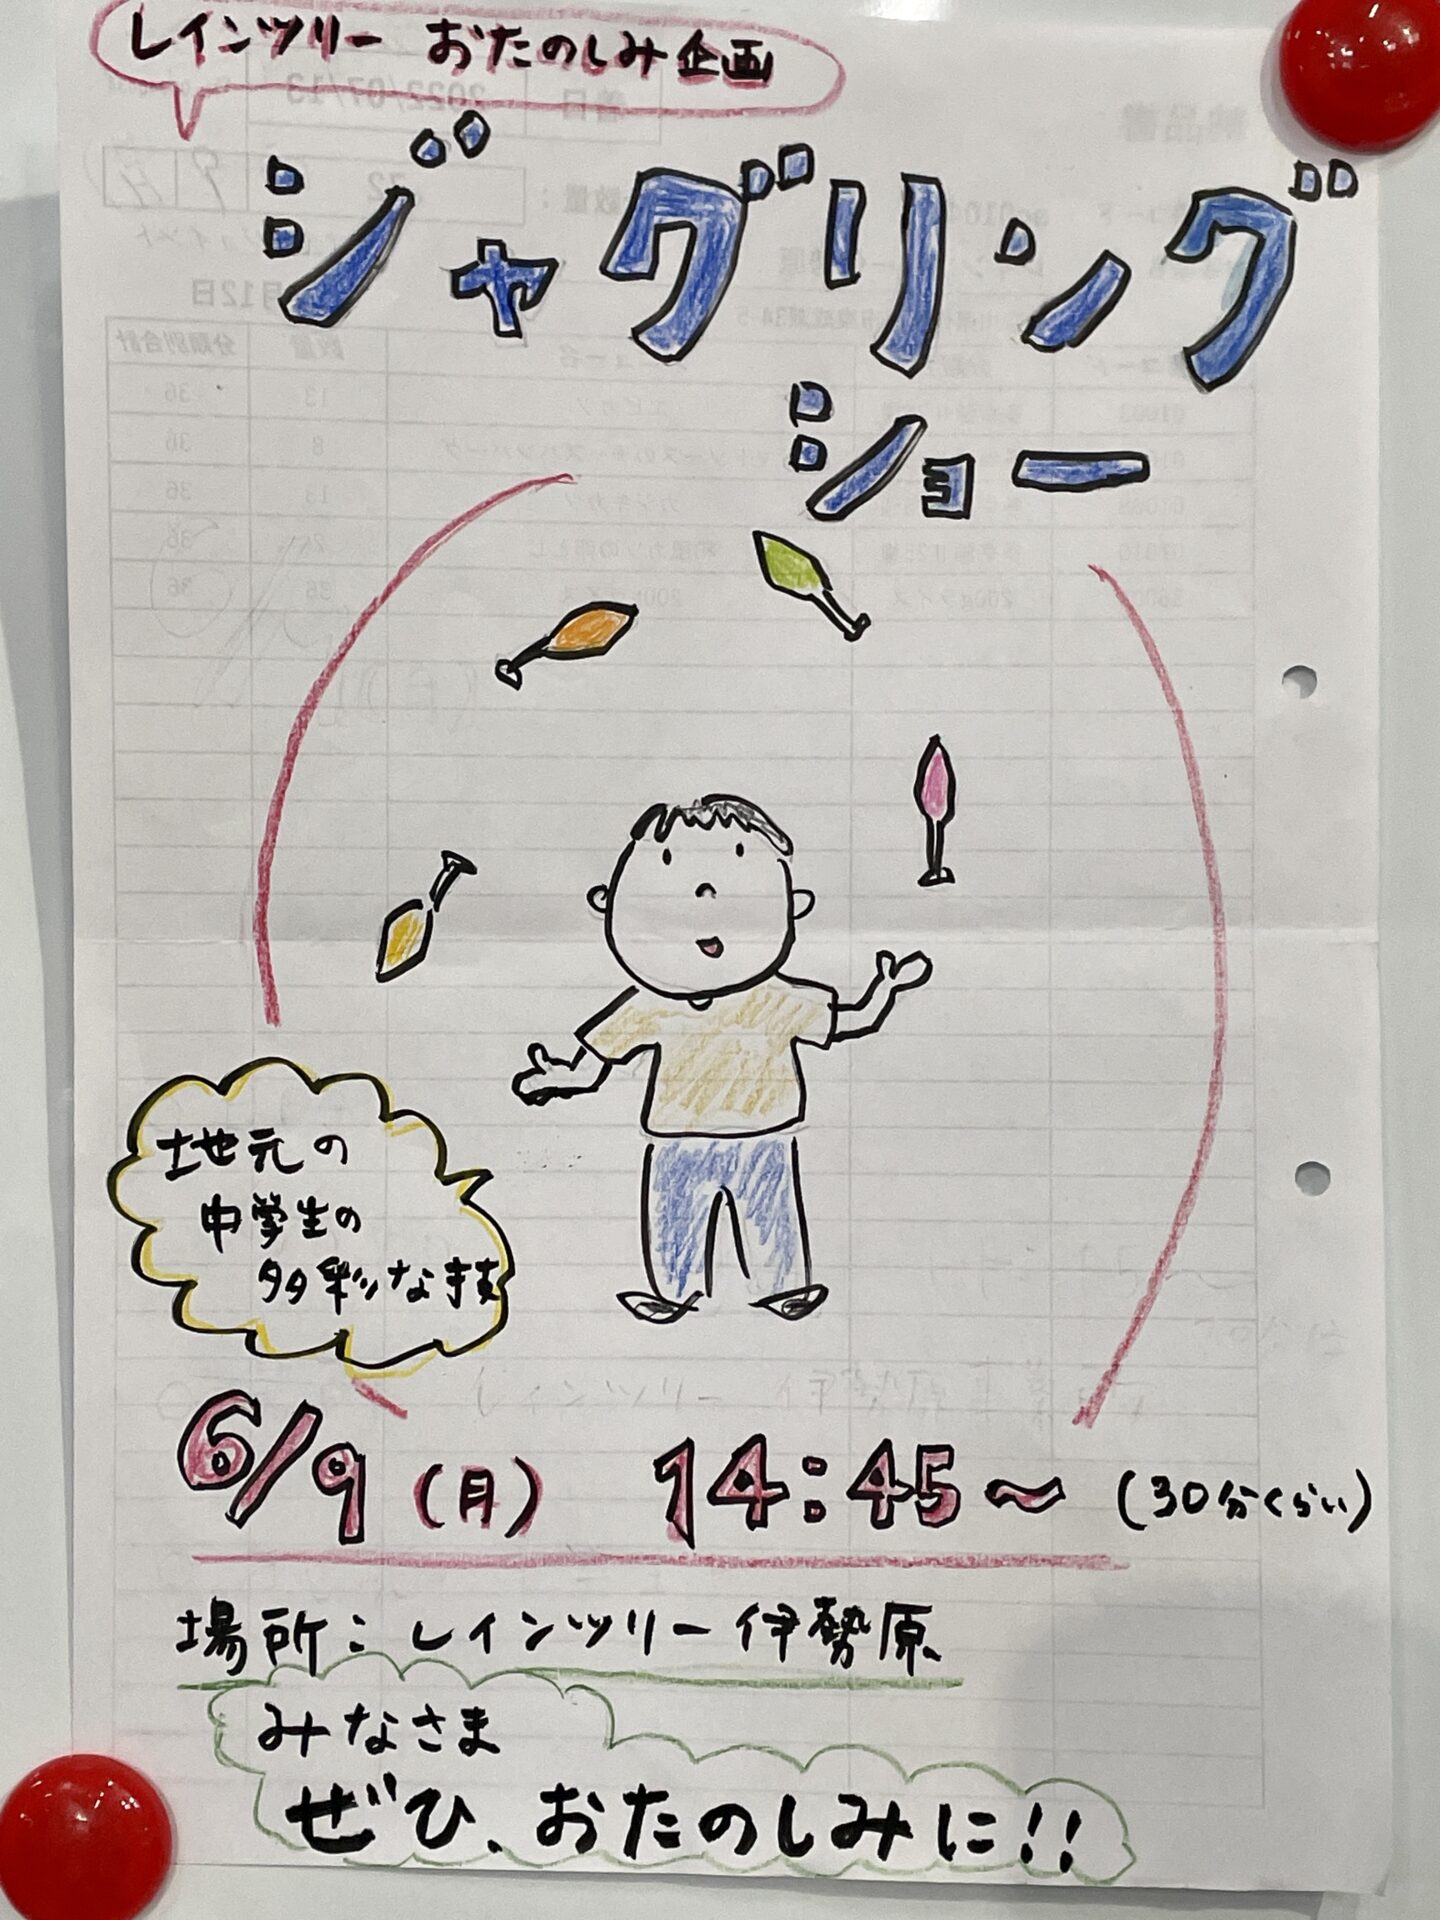 レインツリー おたのしみ企画
ジャグリング
ショー
地元の
中学生の
多彩な技
6/9(月) 14:45〜(30分くらい)
場所:レインツリー伊勢原
みなさま
ぜひ、おたのしみに!!